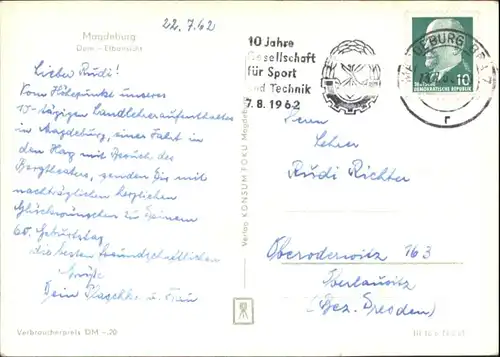 22.7.62
Magdeburg
Dom - Elbansicht
Lieber Rudi!
Vom Höhepunkte unseres
17-tägigen Landlehreraufenthaltes
in Magdeburg, einer Fahrt in
den Harz mit Besuch des
Bergtheaters, senden Dir mit
nachträglichen herzlichen
Glückwünschen zu Deinem
60. Geburtstag
die besten freundschaftlichen
Grüße
Dein u. Frau
Verbraucherpreis DM -,20
Verlag KONSUM FOKU Magdeburg
10 Jahre
Gesellschaft
für Sport
und Technik
7.8.1962
MAGDEBURG
10
DEMOKRATISCHE REPUBLIK
r
Herrn
Lehrer
Rudi Richter
Oberoderwitz 163
Oberlausitz
(Bez. Dresden)